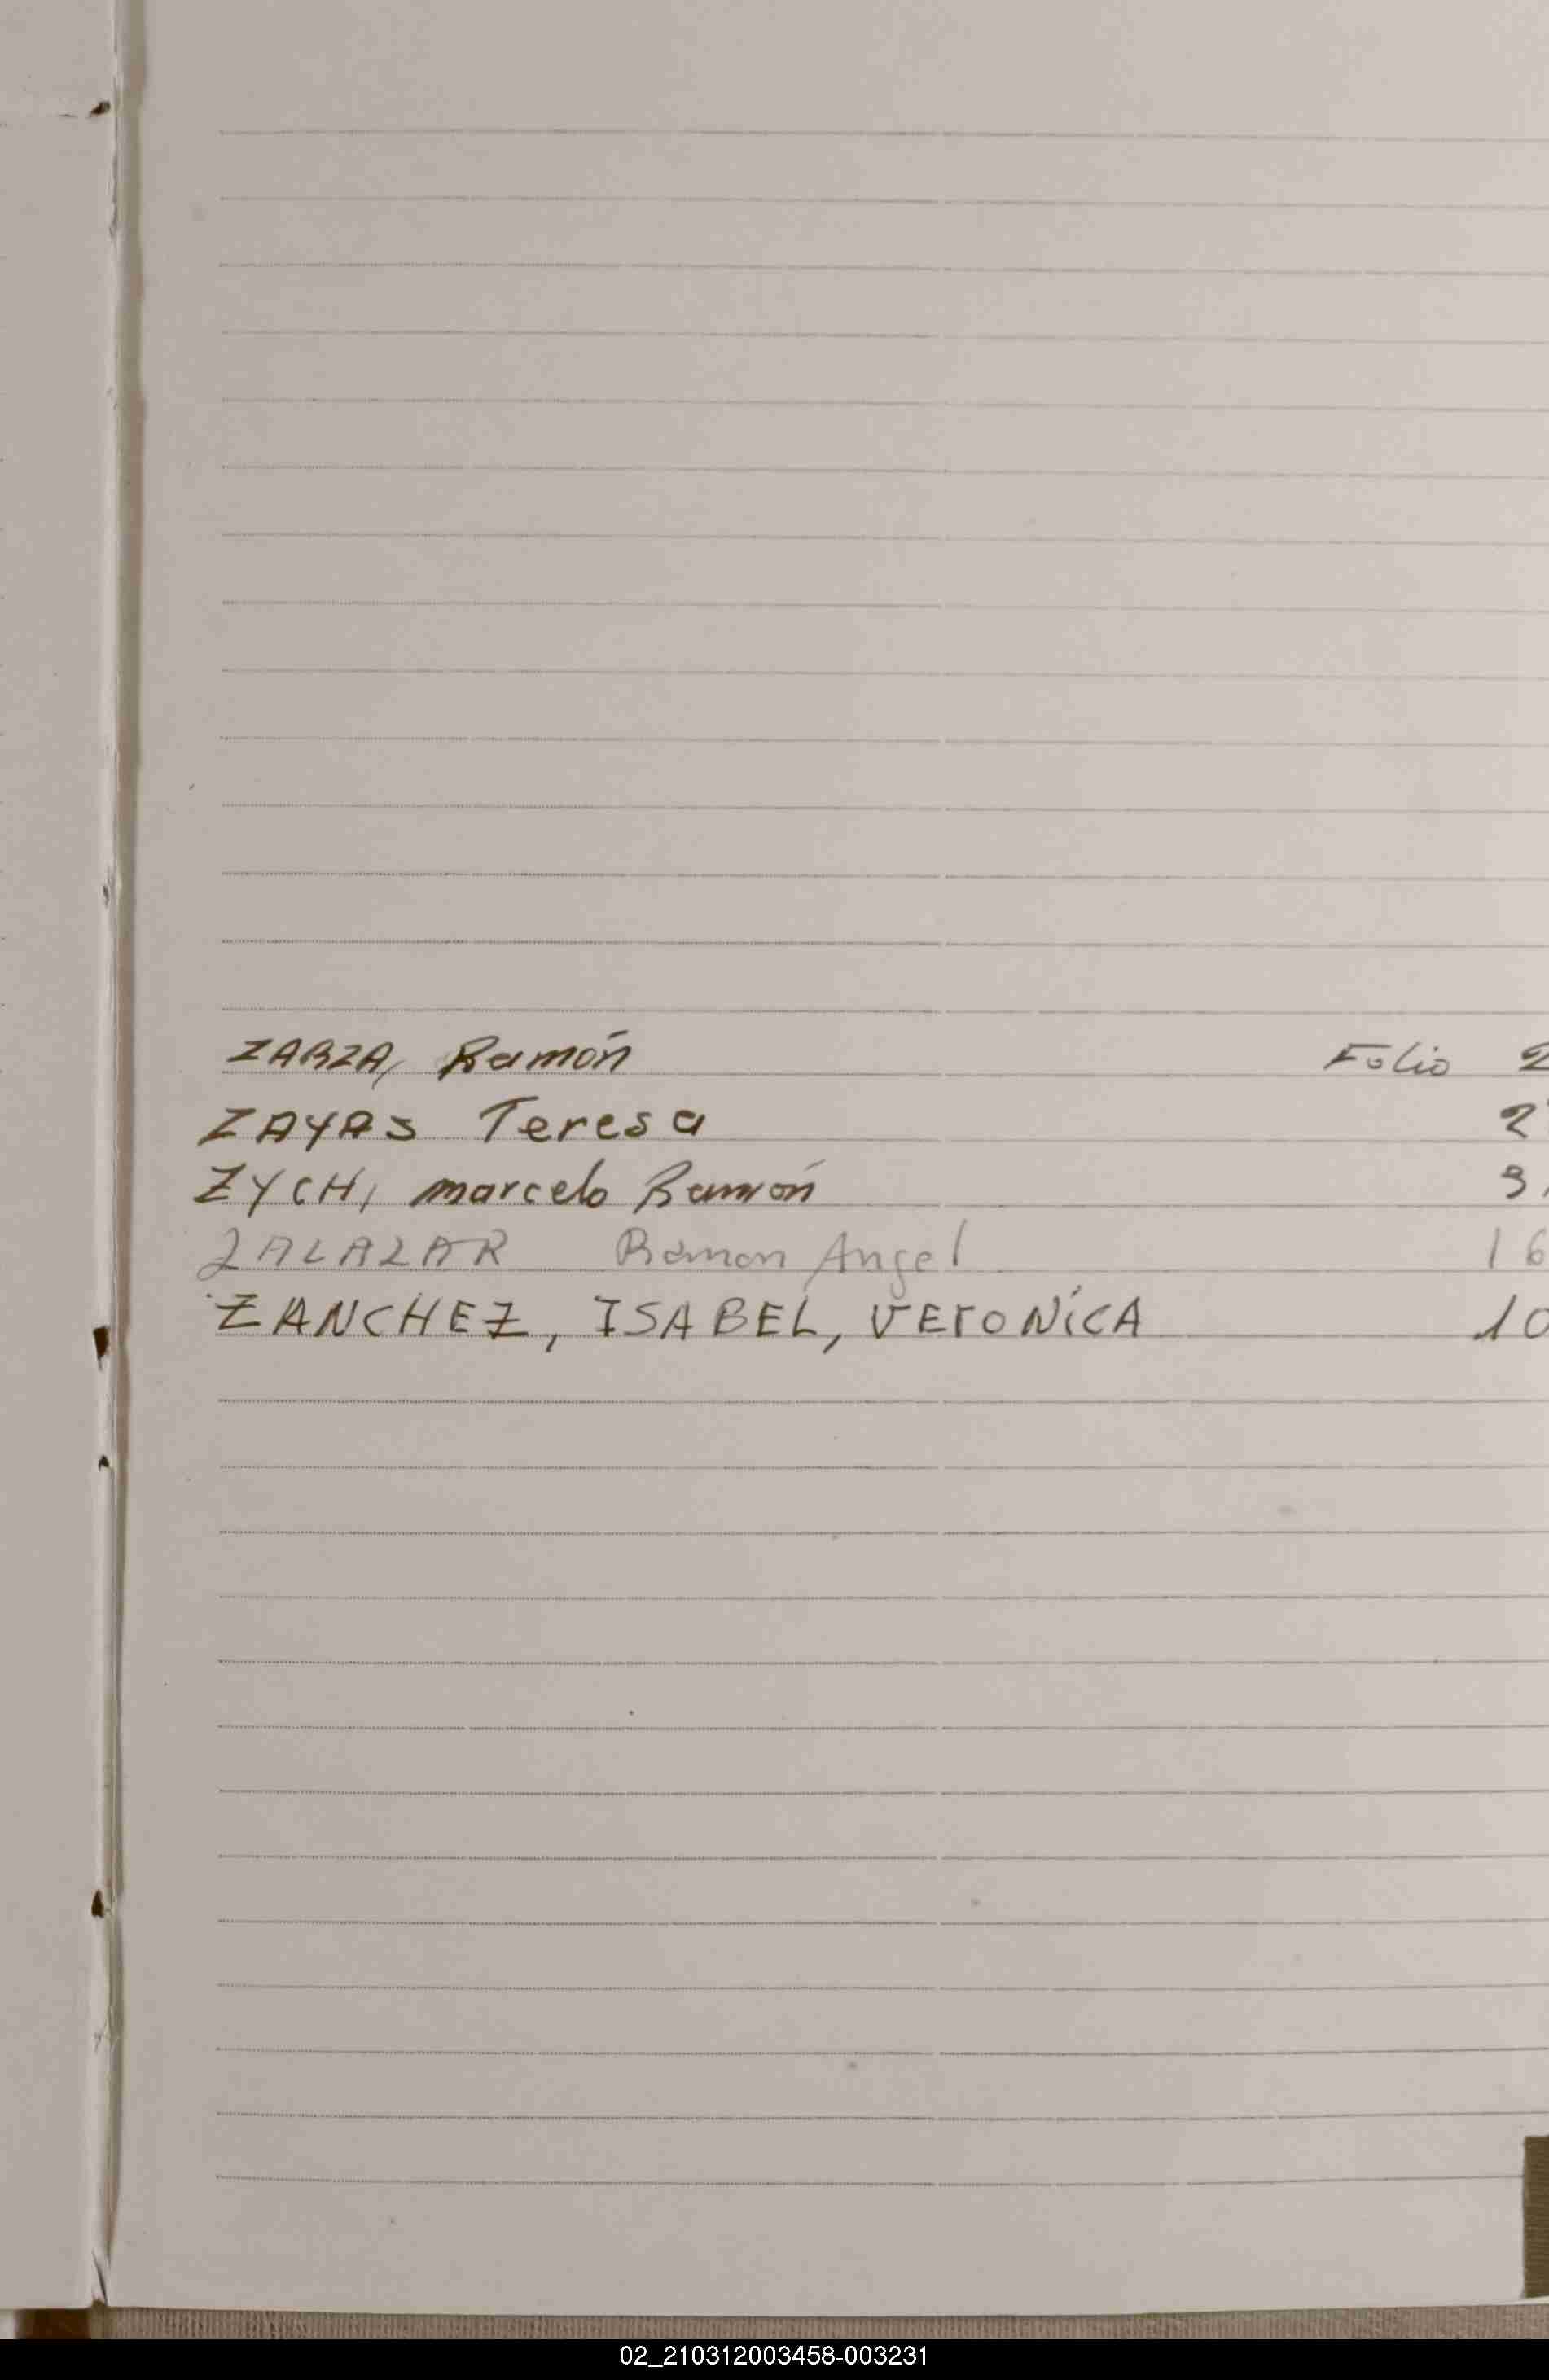 ZARZA, Ramón Folio 2
ZAYAS Teresa 2
ZYCH, marcelo Ramón 3
ZALAZAR Ramon Angel 16
ZANCHEZ, ISABEL, VEroNiCA 10
02_210312003458-003231